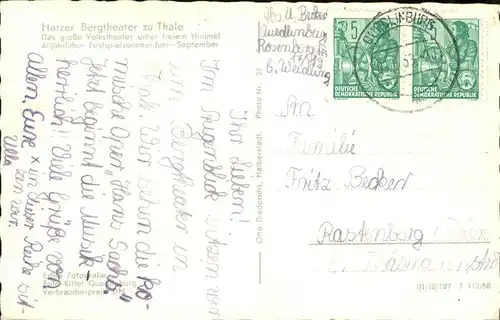 Harzer Bergtheater zu Thale
Das große Volkstheater unter freiem Himmel
Alljährlicher Festspielsommer Juni–September
Abs. U. Becker
Quedlinburg
Rosenberg
b. Weidling
QUEDLINBURG
5
DEUTSCHE
DEMOKRATISCHE REPUBLIK
DEUTSCHE
DEMOKRATISCHE REPUBLIK
Ihr Lieben!
Im Augenblick sitzen wir
im Bergtheater in
Thale. Wir sehen die ko-
mische Oper „Hans Sachs“.
Jetzt beginnt die Musik –
herrlich! Viele Grüße Euch
allen. Eure
x in dieser Reihe sit-
zen wir.
Ulla
An
Familie
Fritz Becker
Rastenberg
Otto Diederichs, Halberstadt, Photo Nr. 32
Fotografie
Foto-Kittel Quedlinburg
Verbraucherpreis DM
III/18/197